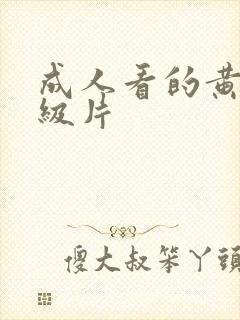 成人看的黄
级片
傻大叔笨丫頭